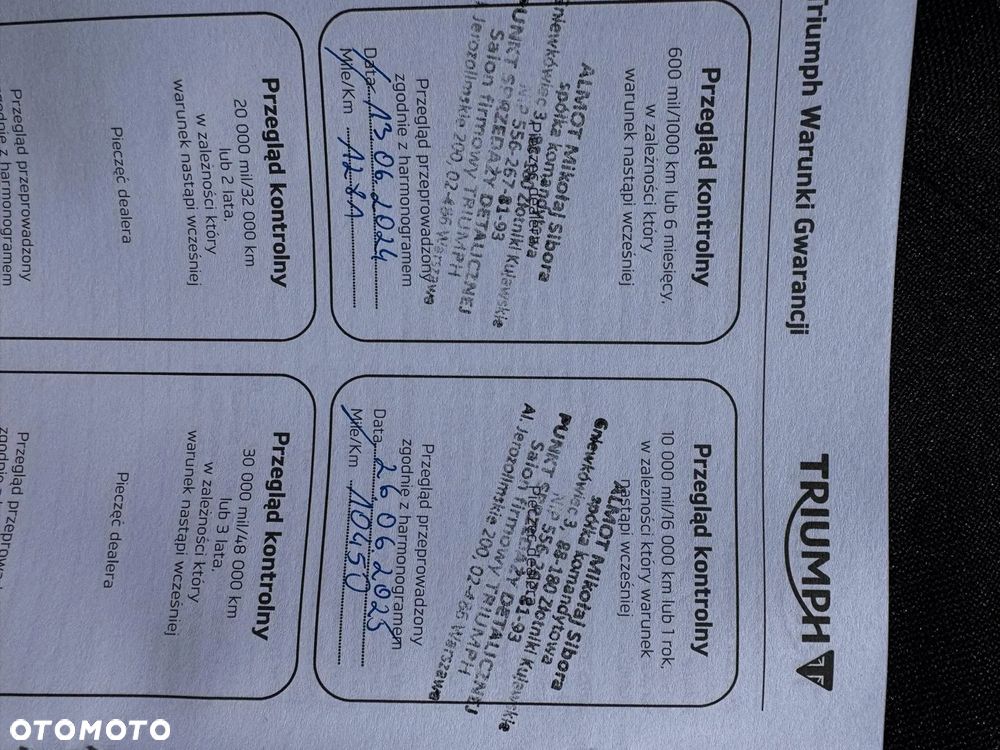 Triumph Warunki Gwarancji
TRIUMPH
Przegląd kontrolny
600 mil/1000 km lub 6 miesięcy,
w zależności który
warunek nastąpi wcześniej
ALMOT Mikołaj Sibora
spółka komandytowa
Gniewkówiec 3, 88-180 Złotniki Kujawskie
NIP 556-267-81-93
PUNKT SPRZEDAŻY DETALICZNEJ
Salon firmowy TRIUMPH
Al. Jerozolimskie 200, 02-486 Warszawa
Pieczęć dealera
Przegląd przeprowadzony
zgodnie z harmonogramem
Data 13 06 2024
Mile/Km 1221
Przegląd kontrolny
10 000 mil/16 000 km lub 1 rok,
w zależności który warunek
nastąpi wcześniej
ALMOT Mikołaj Sibora
spółka komandytowa
Gniewkówiec 3, 88-180 Złotniki Kujawskie
NIP 556-267-81-93
PUNKT SPRZEDAŻY DETALICZNEJ
Salon firmowy TRIUMPH
Al. Jerozolimskie 200, 02-486 Warszawa
Pieczęć dealera
Przegląd przeprowadzony
zgodnie z harmonogramem
Data 26 06 2025
Mile/Km 10450
Przegląd kontrolny
20 000 mil/32 000 km
lub 2 lata,
w zależności który
warunek nastąpi wcześniej
Pieczęć dealera
Przegląd przeprowadzony
zgodnie z harmonogramem
Przegląd kontrolny
30 000 mil/48 000 km
lub 3 lata,
w zależności który
warunek nastąpi wcześniej
Pieczęć dealera
Przegląd przeprowa
zgodnie z har
OTOMOTO